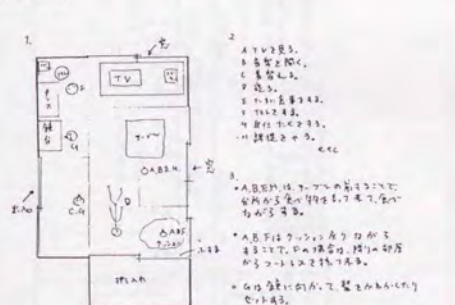 1.
窓
TV
テーブル
A,B,E,H.
窓
鏡台
G
C,G
D
A,B,F
クッション
押し入れ
2
A TVを見る。
B 音楽を聞く。
C 着替える。
D 寝る。
E たまに食事をする。
F TELをする。
G 身じたくをする。
H 課題をやる。
etc
3.
・A,B,E,H,は、テーブルの前ですることで、
台所から食べ物をもって来て、食べ
ながらする。
・A,B,Fはクッション
 することで、Fの場合は、隣りの部屋
からコードレスを持って来る。
・Gは鏡に向かって、髪をかわかしたり
セットする。